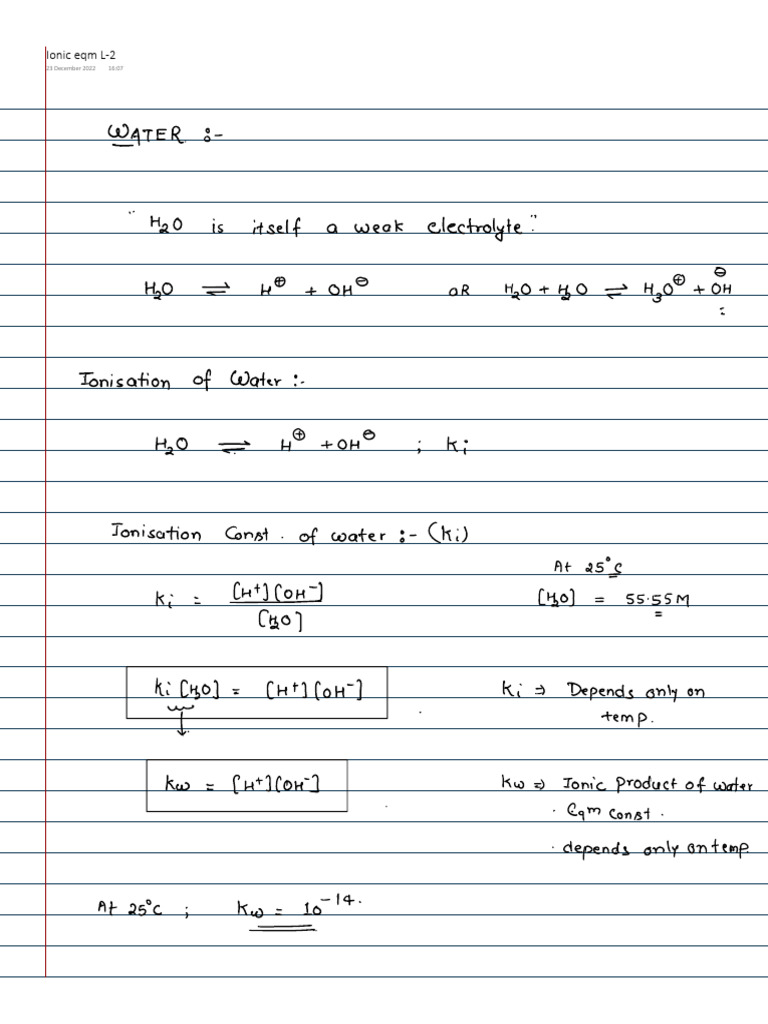 Ionic eqm L-2
23 December 2022 16:07
WATER :-
"H₂O is itself a weak electrolyte"
H₂O ⇌ H⊕ + OH⊖ OR H₂O + H₂O ⇌ H₃O⊕ + OH⊖
Ionisation of Water :-
H₂O ⇌ H⊕ + OH⊖ ; Ki
Ionisation Const. of water :- (Ki)
At 25°C
Ki = [H⁺][OH⁻] / [H₂O] [H₂O] = 55.55M
Ki [H₂O] = [H⁺][OH⁻] Ki ⇒ Depends only on
temp.
Kw = [H⁺][OH⁻] Kw ⇒ Ionic Product of water
· Eqm Const.
· depends only on temp.
At 25°C ; Kw = 10⁻¹⁴.